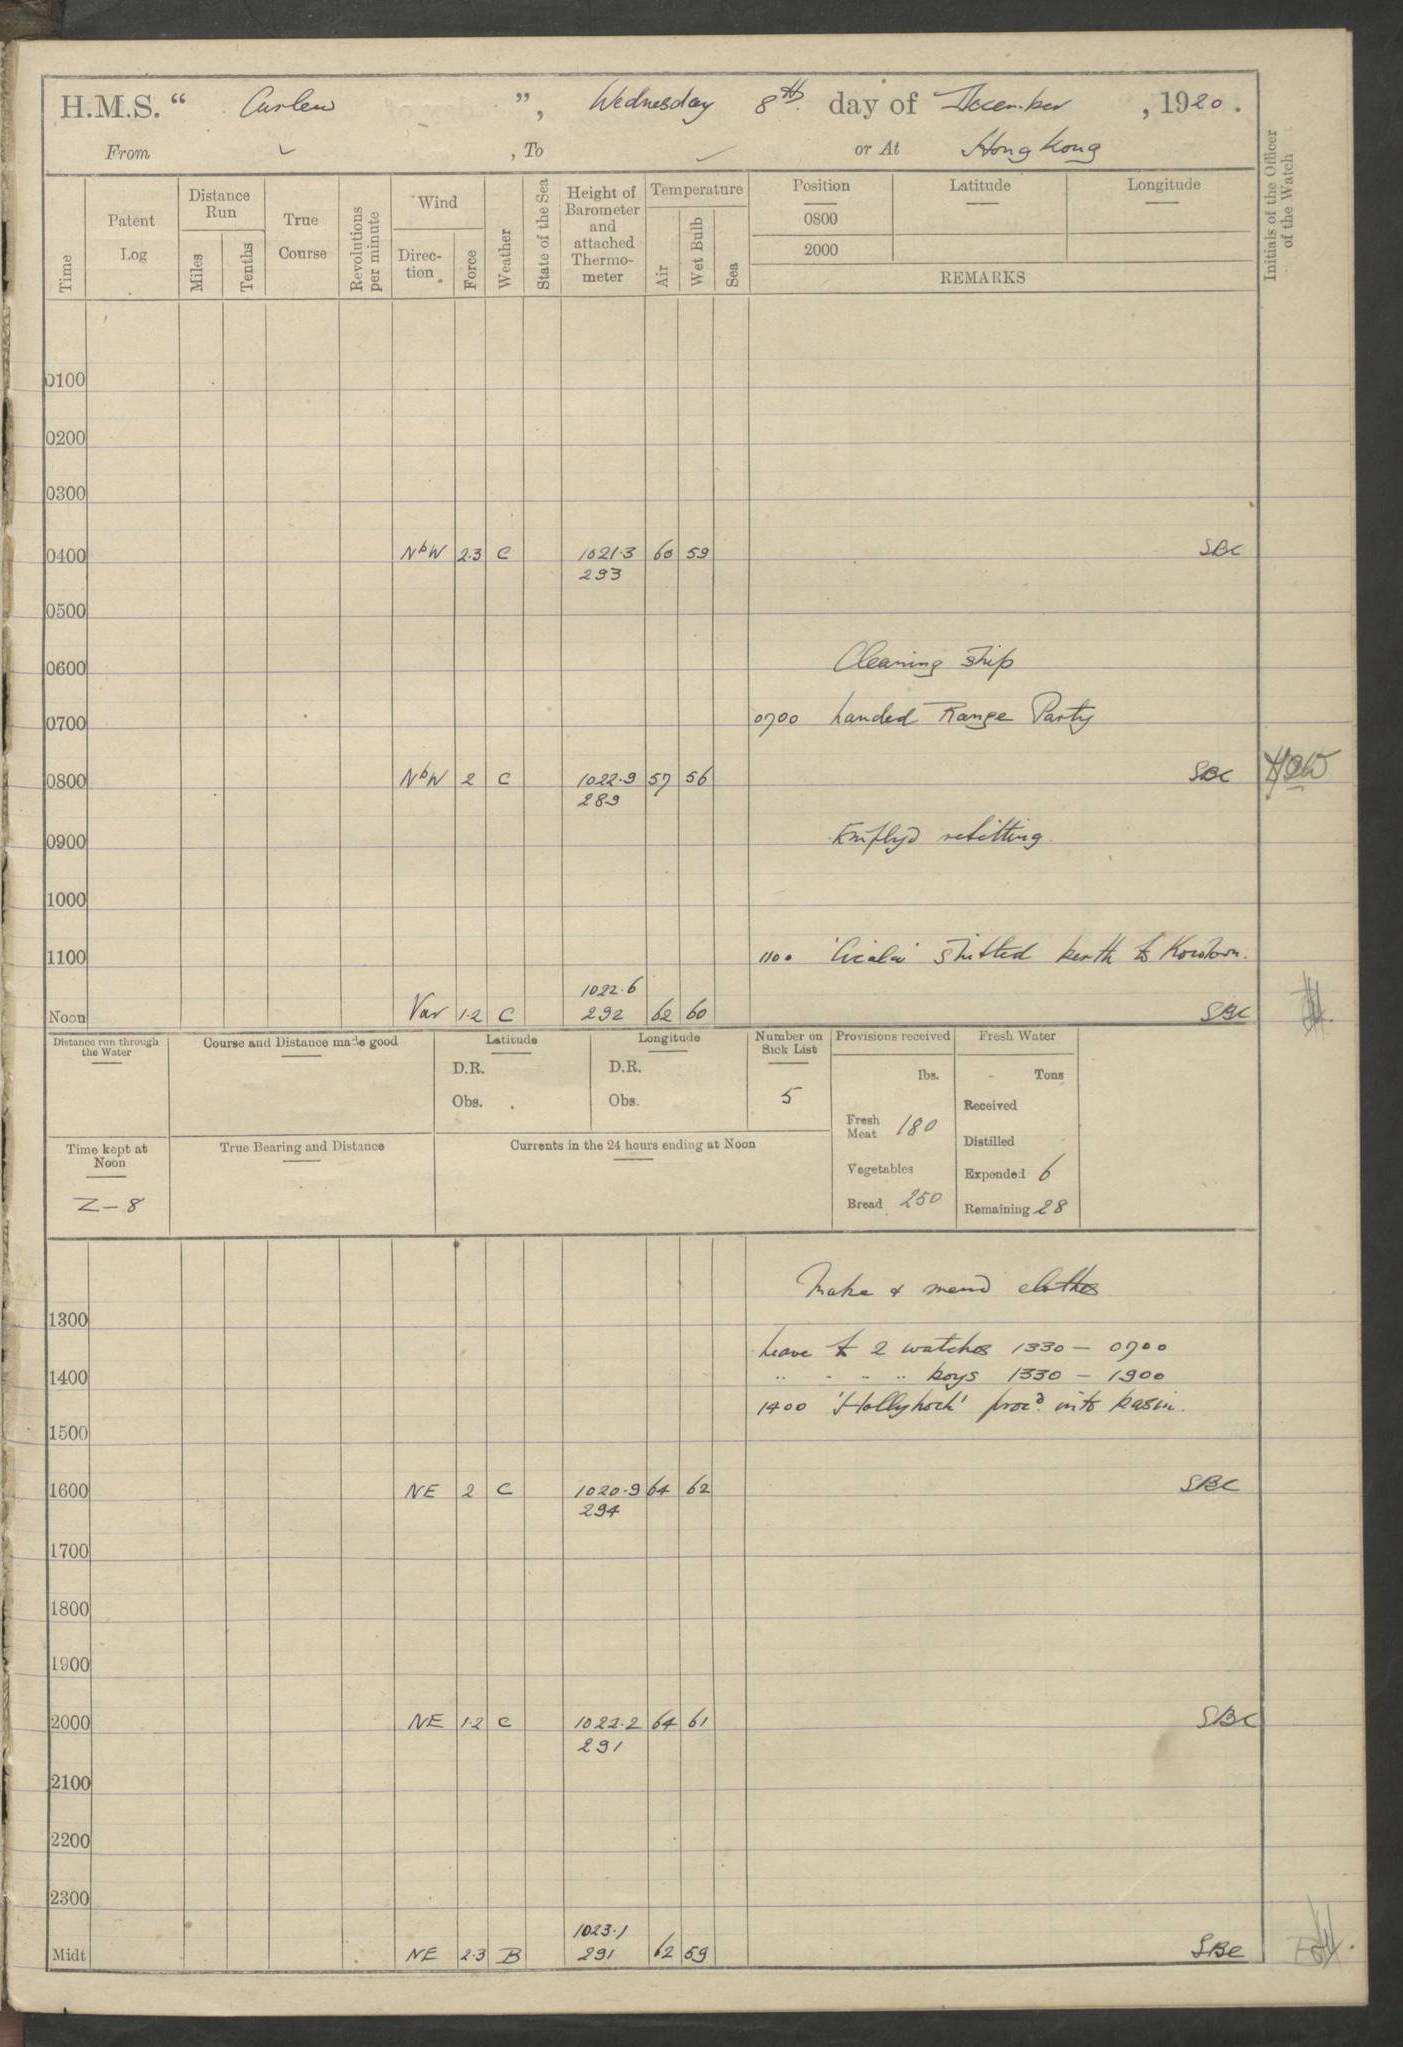 H.M.S. " Curlew ", Wednesday 8th day of December, 1920.
From ✓ , To ✓ or At Hong Kong
Time
Patent Log
Distance Run
Miles
Tenths
True Course
Revolutions per minute
Wind
Direc-tion
Force
Weather
State of the Sea
Height of Barometer and attached Thermo-meter
Temperature
Air
Wet Bulb
Sea
Position
Latitude
Longitude
0800
2000
REMARKS
Initials of the Officer of the Watch
0100
0200
0300
0400 NbW 2.3 C 1021.3 60 59 SBC
293
0500
0600 Cleaning ship
0700 0700 Landed Range Party
0800 NbW 2 C 1022.9 57 56 SBC
289
0900 Employd refitting.
1000
1100 1100 'Cicala' shifted berth to Kowloon.
1022.6
Noon Var 1.2 C 292 62 60 SBC
Distance run through the Water
Course and Distance made good
Latitude
D.R.
Obs.
Longitude
D.R.
Obs.
Number on Sick List
5
Provisions received
lbs.
Fresh Meat 180
Vegetables
Bread 250
Fresh Water
Tons
Received
Distilled
Expended 6
Remaining 28
Time kept at Noon
Z-8
True Bearing and Distance
Currents in the 24 hours ending at Noon
Make & mend clothes
1300
Leave to 2 watches 1330 - 0700
1400 " " " " boys 1330 - 1900
1400 'Hollyhock' procd into basin.
1500
1600 NE 2 C 1020.9 64 62 SBC
294
1700
1800
1900
2000 NE 1.2 C 1022.2 64 61 SBC
291
2100
2200
2300
1023.1
Midt NE 2.3 B 291 62 59 SBC